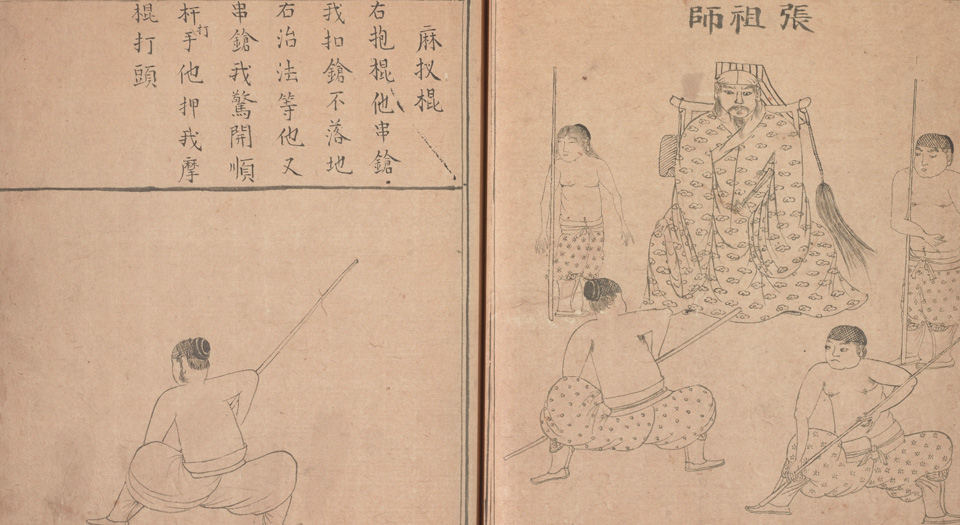 張祖師
麻扠棍
右抱棍他串鎗
我扣鎗不落地
右治法等他又
串鎗我驚開順
杆打手他押我摩
棍打頭